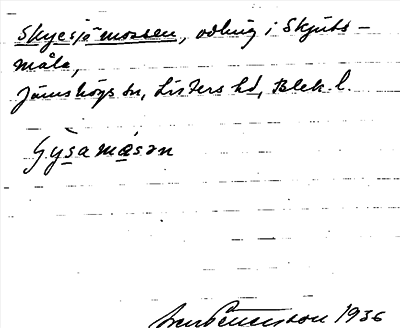 Skyesjömossen, odling i Skjuts-
måla,
Jämshögs sn, Listers hd, Blek. l.
Gysamåsan
Sven Benson 1936